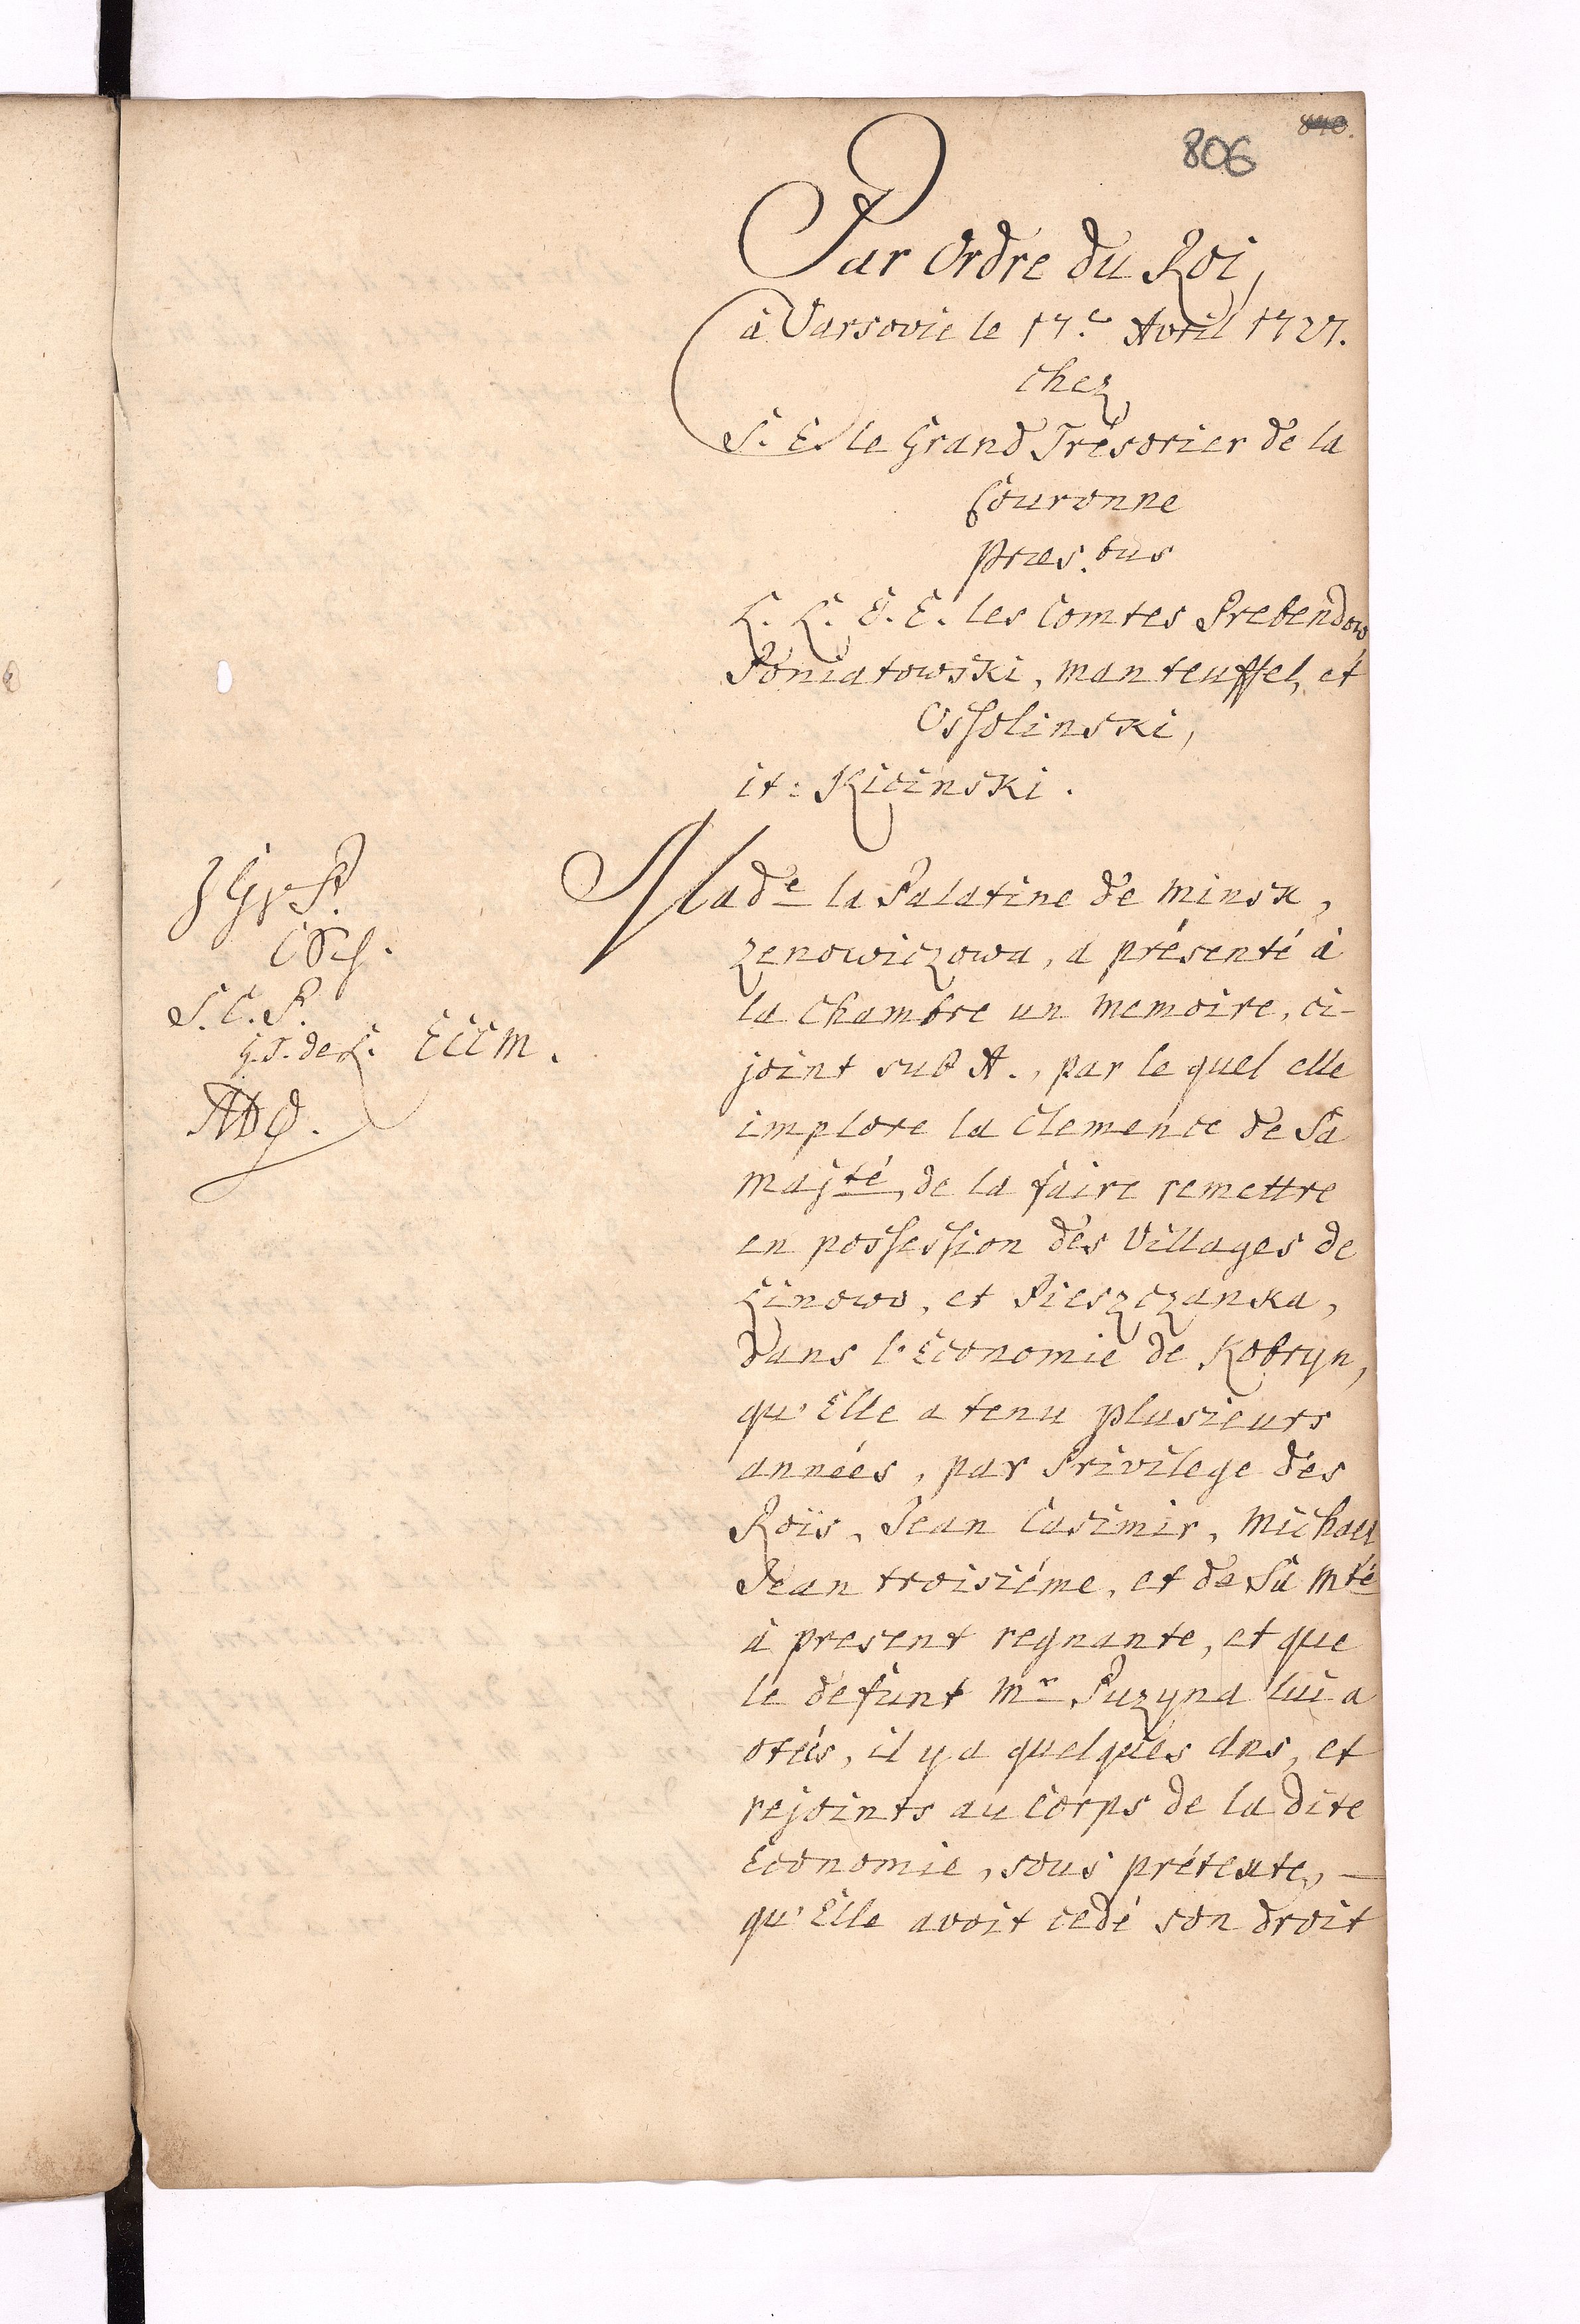 840.
806
Par Ordre du Roi,
à Varsovie le 17.e Avril 1727.
chez
S. E. le Grand Trésorier de la
Couronne
præs.bus
L. L. E. E. les Comtes Prebendow
Poniatowski, Manteuffel, et
Ossolinski,
it: Kicinski.
Made la Palatine de Minsk,
Zenowiczowa, a présenté à
la Chambre un Memoire, ci-
joint sub A., par le quel elle
implore la Clemence de Sa
Majté, de la faire remettre
en possession des Villages de
Linowo, et Pieszczanka,
dans l'Economie de Kobryn,
qu'Elle a tenu plusieurs
années, par Privilege des
Rois, Jean Casimir, Michael
Jean troisiéme, et de Sa Mté
à present regnante, et que
le defunt Mr Puzyna lui a
otés, il y a quelques ans, et
rejoints au Corps de la dite
Economie, sous prétexte, —
qu'Elle avoit cedé son droit
S. C. P.
G.T. de L. ECCM.